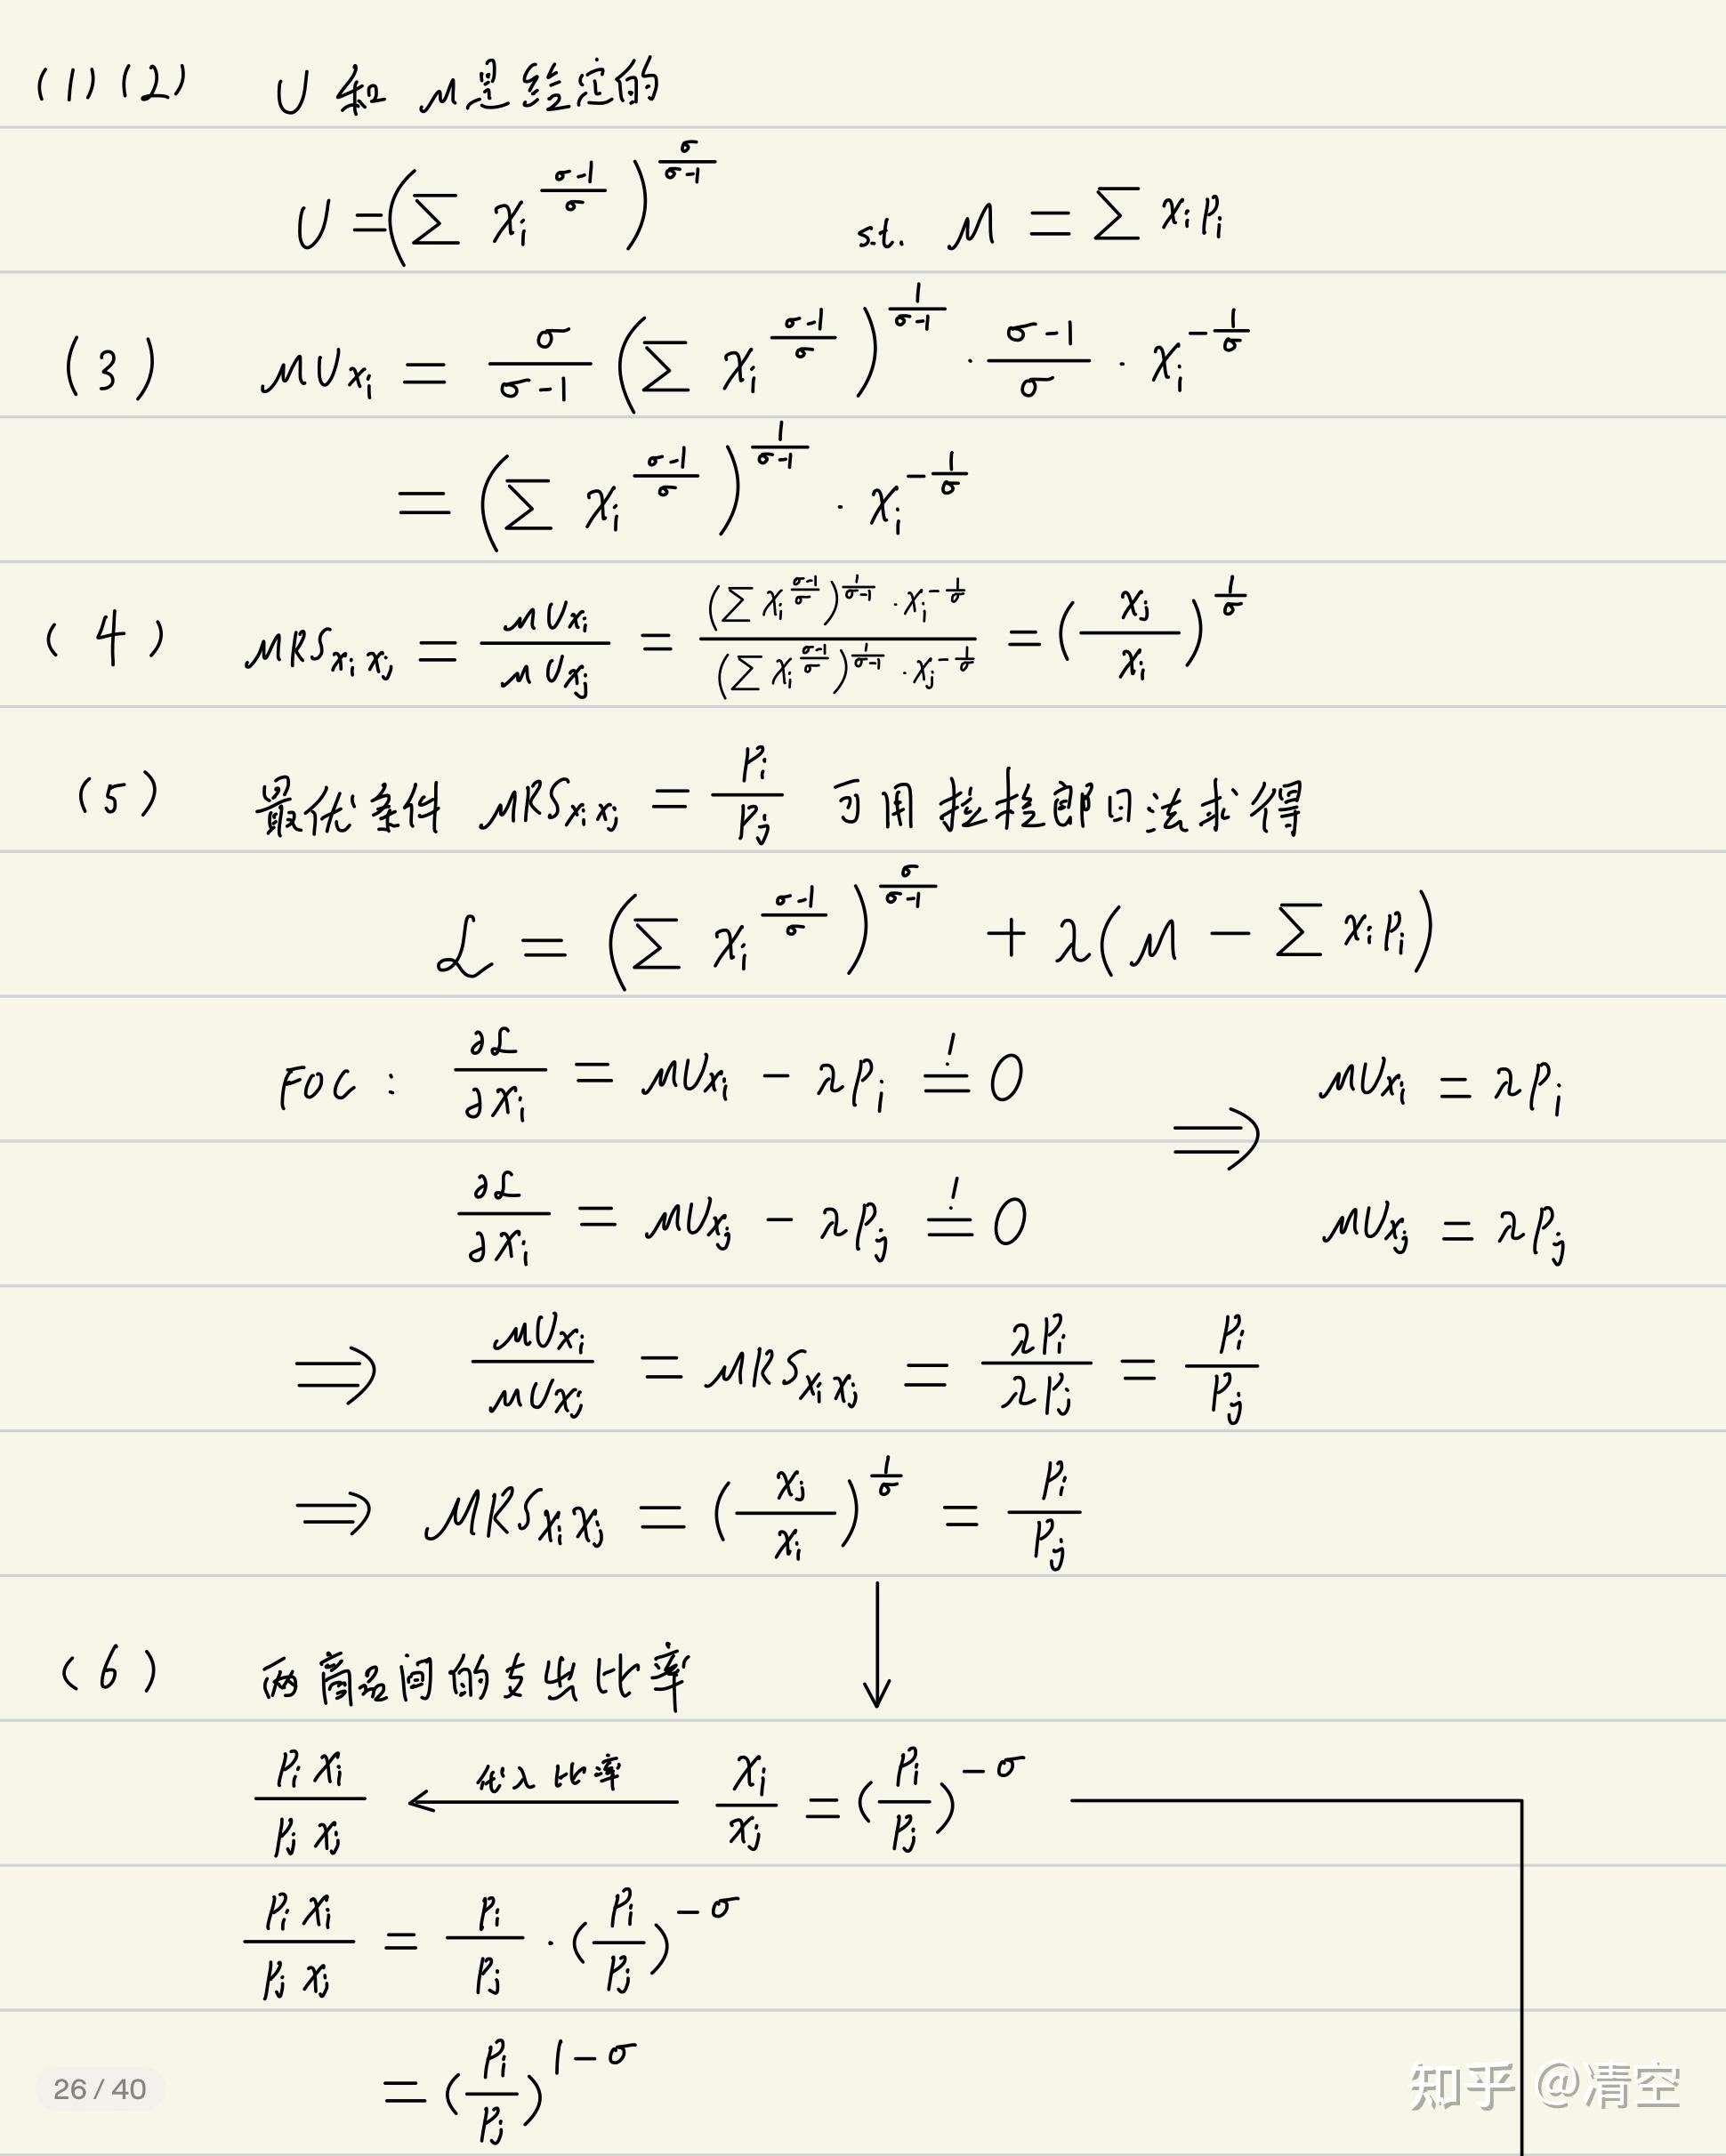 (1)(2) U 和 M是给定的
U = (∑ x_i^{\frac{σ-1}{σ}})^{\frac{σ}{σ-1}} s.t. M = ∑ x_i p_i
(3) MU_{x_i} = \frac{σ}{σ-1} (∑ x_i^{\frac{σ-1}{σ}})^{\frac{1}{σ-1}} · \frac{σ-1}{σ} · x_i^{-\frac{1}{σ}}
= (∑ x_i^{\frac{σ-1}{σ}})^{\frac{1}{σ-1}} · x_i^{-\frac{1}{σ}}
(4) MRS_{x_i x_j} = \frac{MU_{x_i}}{MU_{x_j}} = \frac{(∑ x_i^{\frac{σ-1}{σ}})^{\frac{1}{σ-1}} · x_i^{-\frac{1}{σ}}}{(∑ x_i^{\frac{σ-1}{σ}})^{\frac{1}{σ-1}} · x_j^{-\frac{1}{σ}}} = (\frac{x_j}{x_i})^{\frac{1}{σ}}
(5) 最优条件 MRS_{x_i x_j} = \frac{P_i}{P_j} 可用拉拉朗日法求得
ℒ = (∑ x_i^{\frac{σ-1}{σ}})^{\frac{σ}{σ-1}} + λ(M - ∑ x_i p_i)
FOC : \frac{∂ℒ}{∂x_i} = MU_{x_i} - λP_i \overset{!}{=} 0 ⟹ MU_{x_i} = λP_i
\frac{∂ℒ}{∂x_i} = MU_{x_j} - λP_j \overset{!}{=} 0 MU_{x_j} = λP_j
⟹ \frac{MU_{x_i}}{MU_{x_j}} = MRS_{x_i x_j} = \frac{λP_i}{λP_j} = \frac{P_i}{P_j}
⟹ MRS_{x_i x_j} = (\frac{x_j}{x_i})^{\frac{1}{σ}} = \frac{P_i}{P_j}
(6) 两商品间的支出比率
\frac{P_i x_i}{P_j x_j} ← 代入比率 \frac{x_i}{x_j} = (\frac{P_i}{P_j})^{-σ}
\frac{P_i x_i}{P_j x_j} = \frac{P_i}{P_j} · (\frac{P_i}{P_j})^{-σ}
= (\frac{P_i}{P_j})^{1-σ}
26 / 40
知乎 @清空